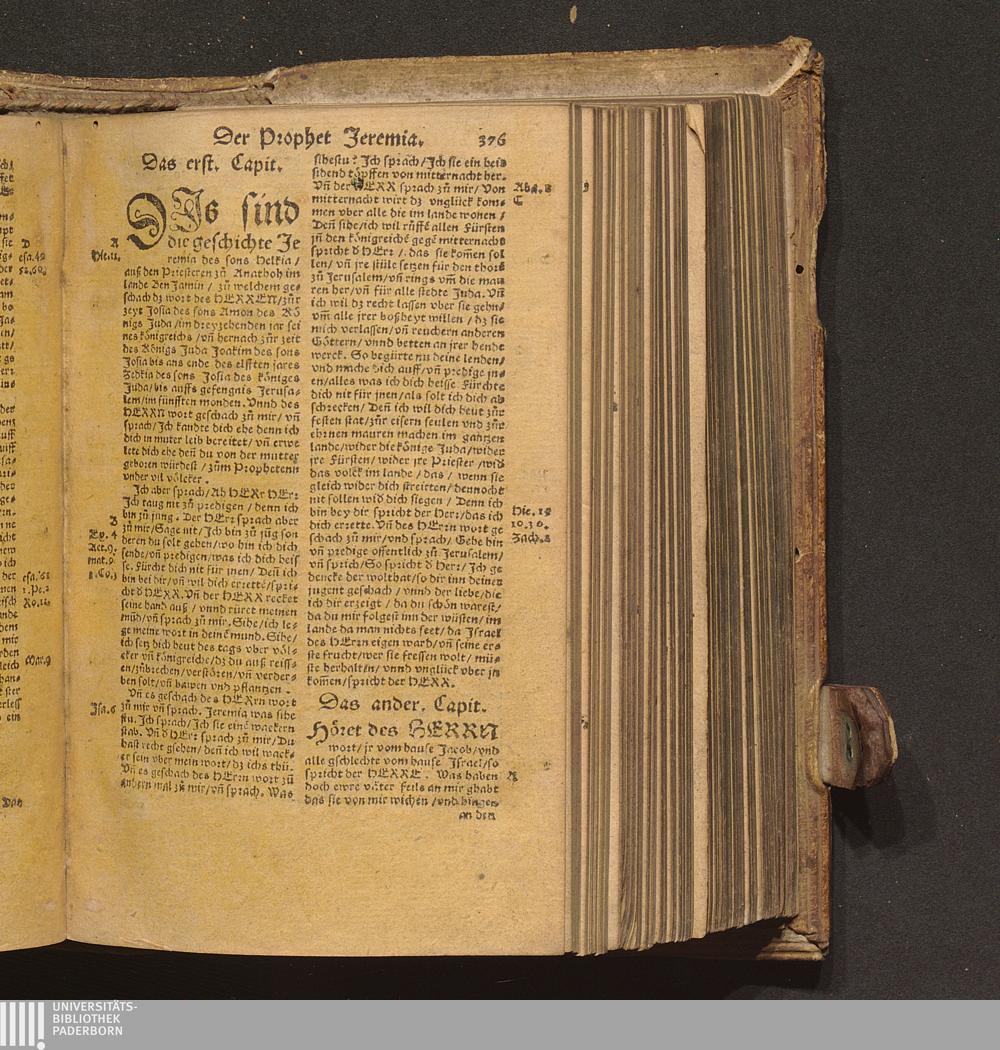 Der Prophet Jeremia.
376
Das erst. Capit.
DIs sind
die geschichte Je
remia des sons Helkia /
auß den Priesteren zů Anathoh im
lande Ben Jamin / zů welchem ge-
schach dz wort des HERREN/zůr
zeyt Josia des sons Amon des Kö
nigs Juda /im dreyzehenden jar sei
nes königreichs /vñ hernach zůr zeit
des Königs Juda Joakim des sons
Josia bis ans ende des elfften jares
Zedkia des sons Josia des königes
Juda/bis auffs gefengnis Jerusa-
lem/im fünfften monden. Vnnd des
HERRN wort geschach zů mir/ vñ
sprach/ Ich kandte dich ehe denn ich
dich in muter leib bereitet/ vñ erwe
lete dich ehe deñ du von der mutter
geboren würdest / zům Prophetenn
vnder vil völcker.
Ich aber sprach/Ah HERr HErr
Ich taug nit zů predigen / denn ich
bin zů jung. Der HErr sprach aber
zů mir/Sage nit/Ich bin zů jüg son
deren du solt gehen/wo hin ich dich
sende/vñ predigen/was ich dich heis
se. Fürcht dich nit für jnen/ Deñ ich
bin bei dir/vñ wil dich errettē/spri-
cht d HERR. Vñ der HERR recket
seine hand auß / vnnd rüret meinen
mūd/vñ sprach zů mir, Sihe/ich le-
ge meine wort in deinē mund. Sihe/
ich setz dich heut des tags vber völ-
cker vñ königreiche/dz du auß reiss-
en/zůbrechen/verstören/vñ verder-
ben solt/vñ bawen vnd pflantzen.
Vñ es geschach des HERrn wort
zů mir vñ sprach. Jeremia was sihe
stu. Ich sprach/Ich sie einē wackern
stab. Vñ d HErr sprach zů mir/Du
hast recht gsehen/deñ ich wil wack-
er sein vber mein wort/dz ichs thü.
Vñ es geschach des HErrn wort zů
andern mal zů mir/vñ sprach. Was
A
Hiem,
B
Ex. 4
Act.9.
mat.9.
Jsa.6
sihestu? Ich sprach/Ich sie ein heis
sihend töpffen von mitternacht her.
Vñ der HERR sprach zů mir/ Von
mitternacht wirt dz vnglück kom-
men vber alle die im lande wonen /
Deñ sihe/ich wil růffē allen Fürsten
jn den königreichē gegē mitternacht
spricht d HErr /. das sie komen sol
len/ vñ jre stüle setzen für den thorē
zů Jerusalem/vñ rings vm̄ die mau
ren her/vñ für alle stedte Juda. Vñ
ich wil dz recht lassen vber sie gehn/
vm̄ alle jrer boßheyt willen / dz sie
mich verlassen/ vñ reuchern anderen
Göttern/ vnnd betten an jrer hende
werck. So begürte nu deine lenden/
vnd mache dich auff/vñ predige jn-
en/alles was ich dich heisse. Fürchte
dich nit für jnen/als solt ich dich ab
schrecken/ Deñ ich wil dich heut zůr
festen stat/zůr eisern seulen vnd zůr
ehrnen mauren machen im gantzen
lande/wider die könige Juda/wider
jre Fürsten/ wider jre Priester /wid
das volck im lande / das / wenn sie
gleich wider dich streitten/ dennocht
nit sollen wid dich siegen / Denn ich
bin bey dir spricht der Herr/das ich
dich errette. Vñ des HErrn wort ge
schach zů mir/vnd sprach/ Gehe hin
vñ predige offentlich zů Jerusalem/
vñ sprich/So spricht d Herr/ Ich ge
dencke der wolthat/so dir inn deiner
jugent geschah / vnnd der liebe/die
ich dir erzeigt / da du schön warest/
da du mir folgest inn der wüsten/ im
lande da man nichts seet/ da Israel
des HErrn eigen ward/vñ seine er-
ste frucht/wer sie fressen wolt / mü-
ste herhaltē/ vnnd vnglück vber jn
komen/spricht der HERR.
Das ander. Capit.
Höret des HERRN
wort/ jr vom hause Jacob/vnd
alle gschlechte vom hause Israel/so
spricht der HERRE. Was haben
doch ewre väter feils an mir ghabt
das sie von mir wichen /vnd hingen
an den
Aba.8
C
Hie.15
Zach.2
D
esa.42
esa.65
1.Pe.2
Ro.12
Mar.9
Das
UNIVERSITÄTS-
BIBLIOTHEK
PADERBORN